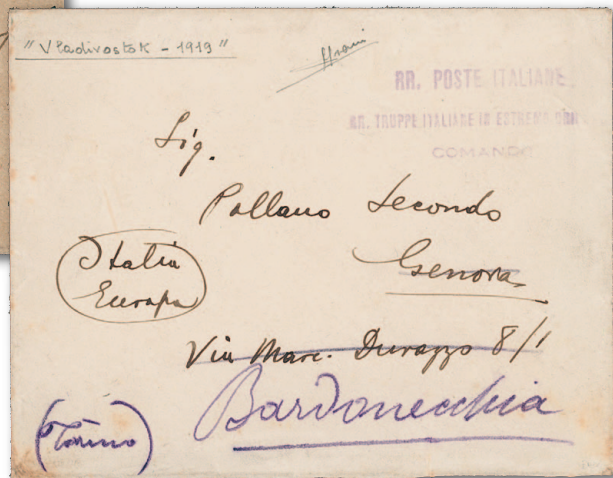 "Vladivostok - 1919"
RR. POSTE ITALIANE
RR. TRUPPE ITALIANE IN ESTREMO
COMANDO
Sig.
Pollano Secondo
Genova
Italia
Europa
Via Marc. Durazzo 8/1
Bardonecchia
(Torino)